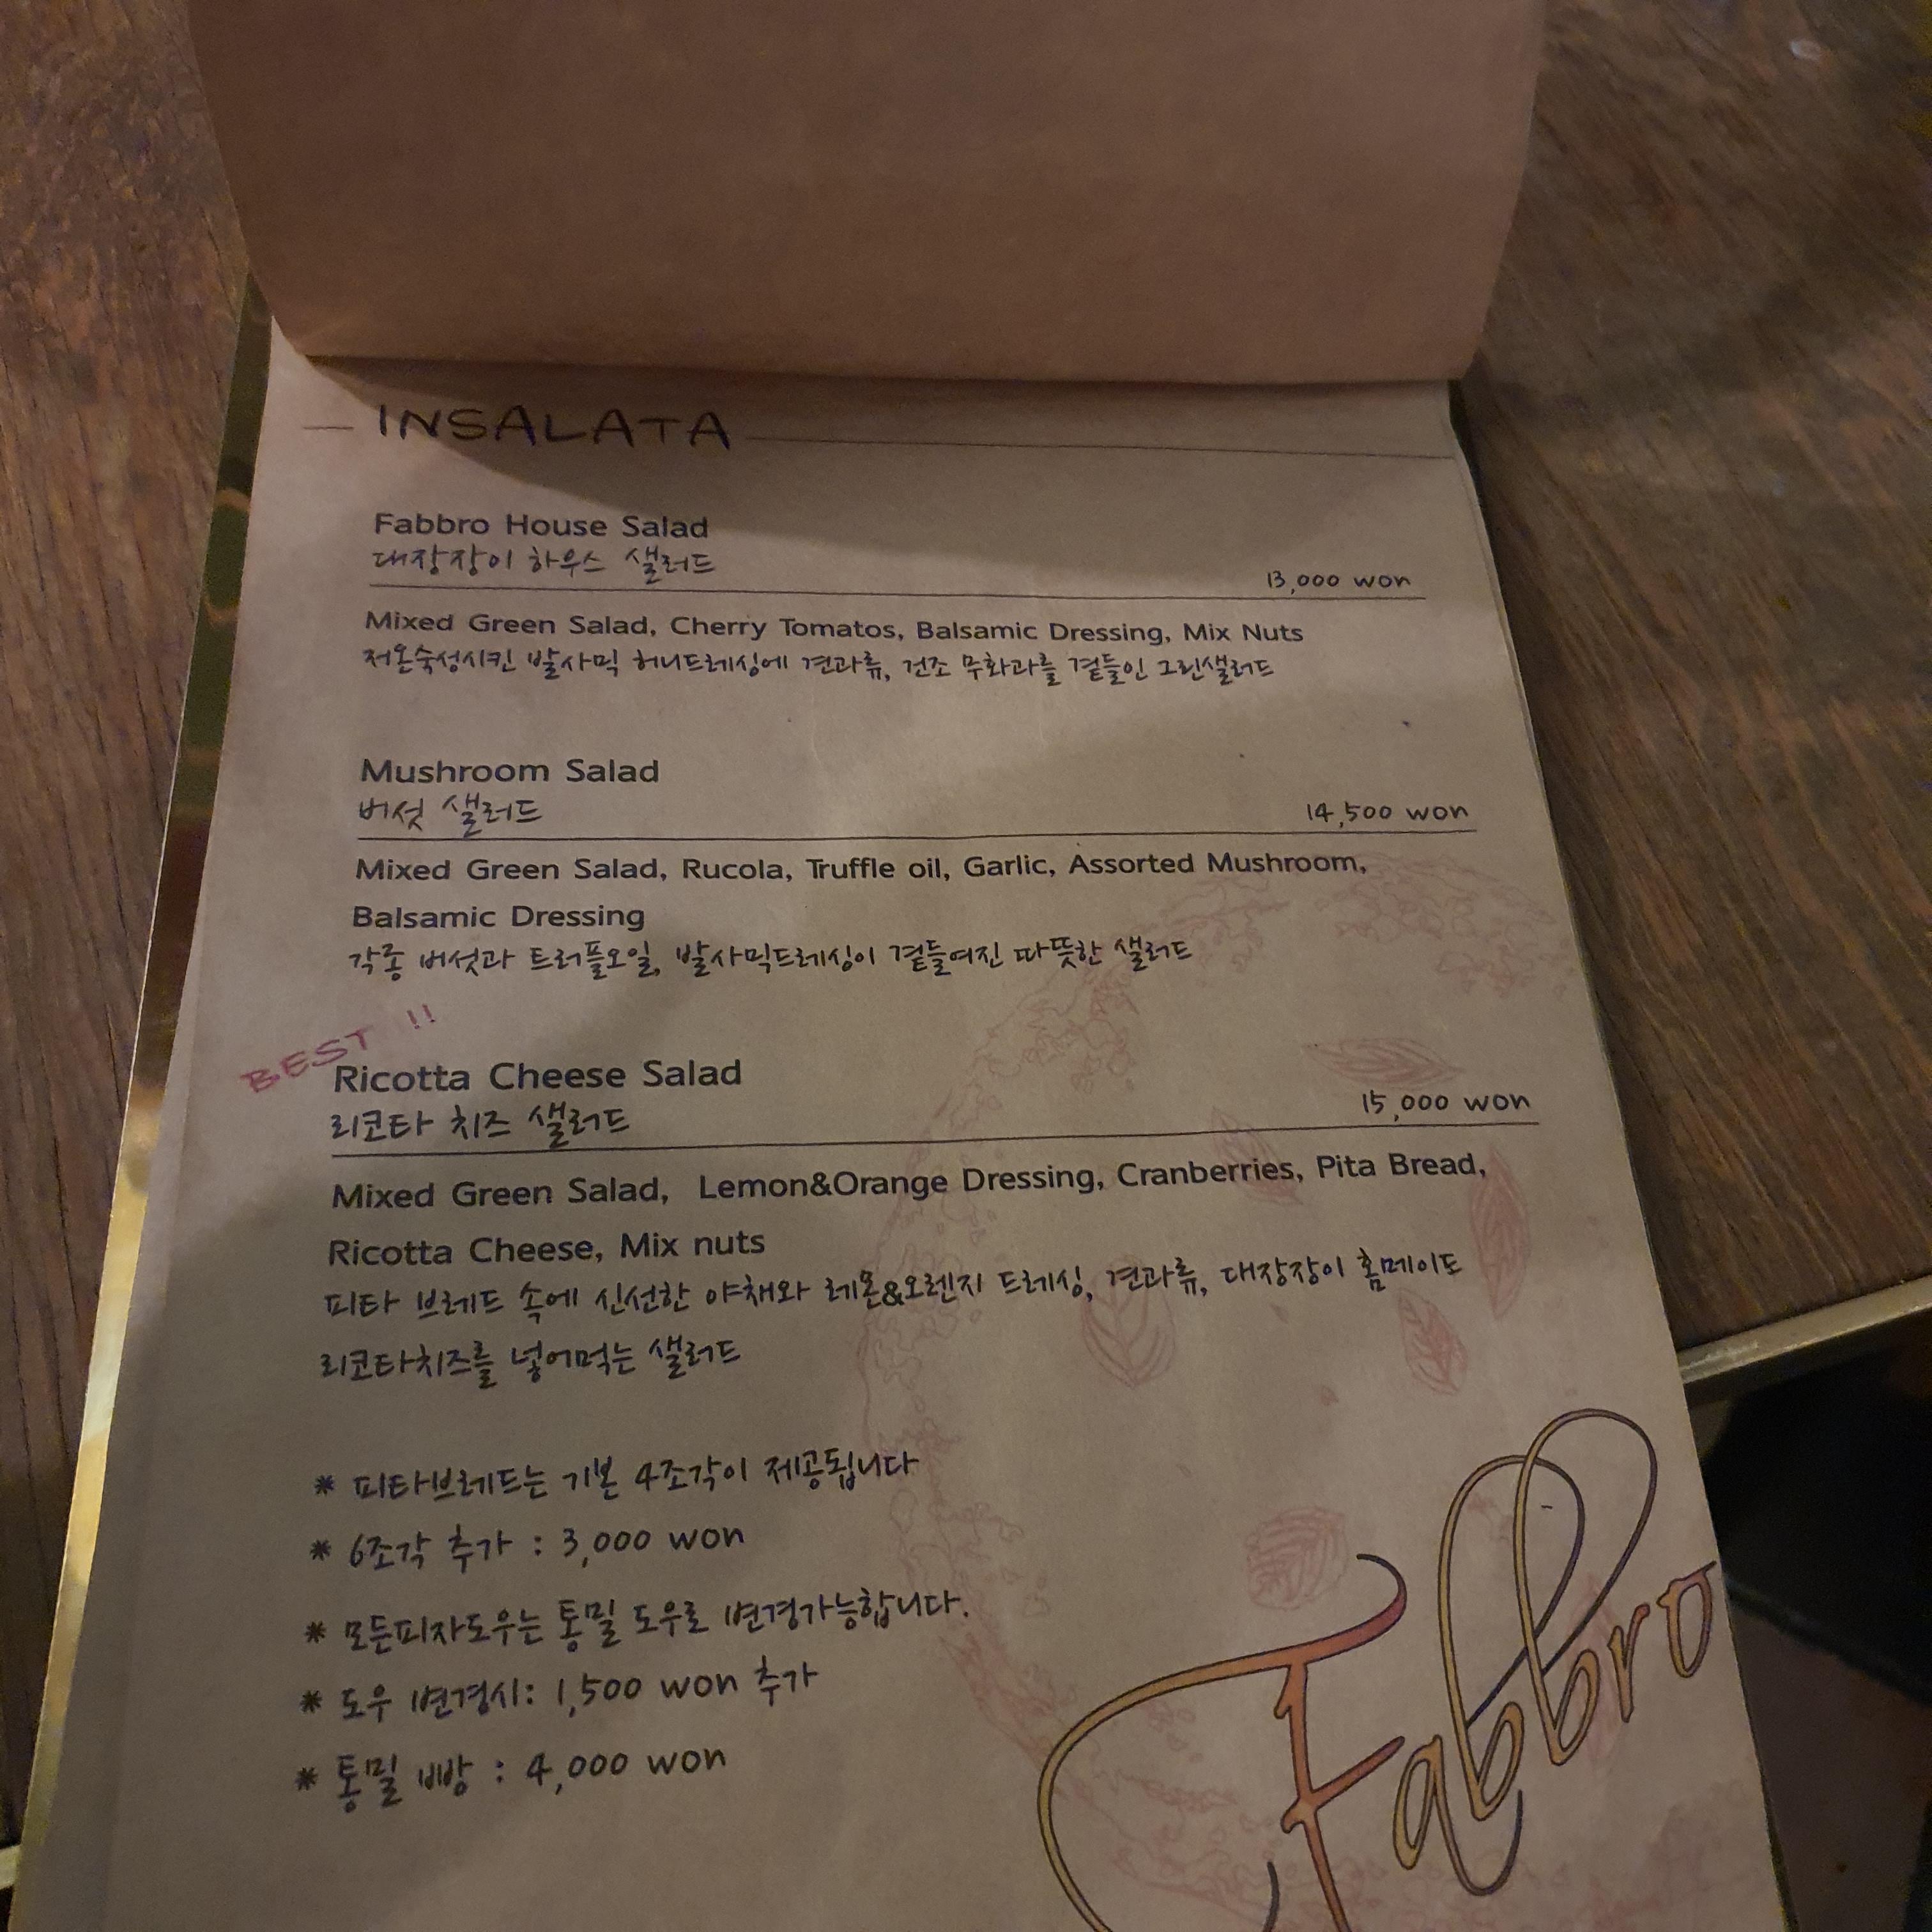 INSALATA
Fabbro House Salad
대장장이 하우스 샐러드
13,000 won
Mixed Green Salad, Cherry Tomatos, Balsamic Dressing, Mix Nuts
저온숙성시킨 발사믹 허니드레싱에 견과류, 건조 무화과를 곁들인 그린샐러드
Mushroom Salad
버섯 샐러드
14,500 won
Mixed Green Salad, Rucola, Truffle oil, Garlic, Assorted Mushroom,
Balsamic Dressing
각종 버섯과 트러플오일, 발사믹드레싱이 곁들여진 따뜻한 샐러드
BEST !!
Ricotta Cheese Salad
리코타 치즈 샐러드
15,000 won
Mixed Green Salad, Lemon&Orange Dressing, Cranberries, Pita Bread,
Ricotta Cheese, Mix nuts
피타 브레드 속에 신선한 야채와 레몬&오렌지 드레싱, 견과류, 대장장이 홈메이트
리코타치즈를 넣어먹는 샐러드
* 피타브레드는 기본 4조각이 제공됩니다
* 6조각 추가 : 3,000 won
* 모든피자도우는 통밀 도우로 변경가능합니다.
* 도우 변경시: 1,500 won 추가
* 통밀 빵 : 4,000 won
Fabbro